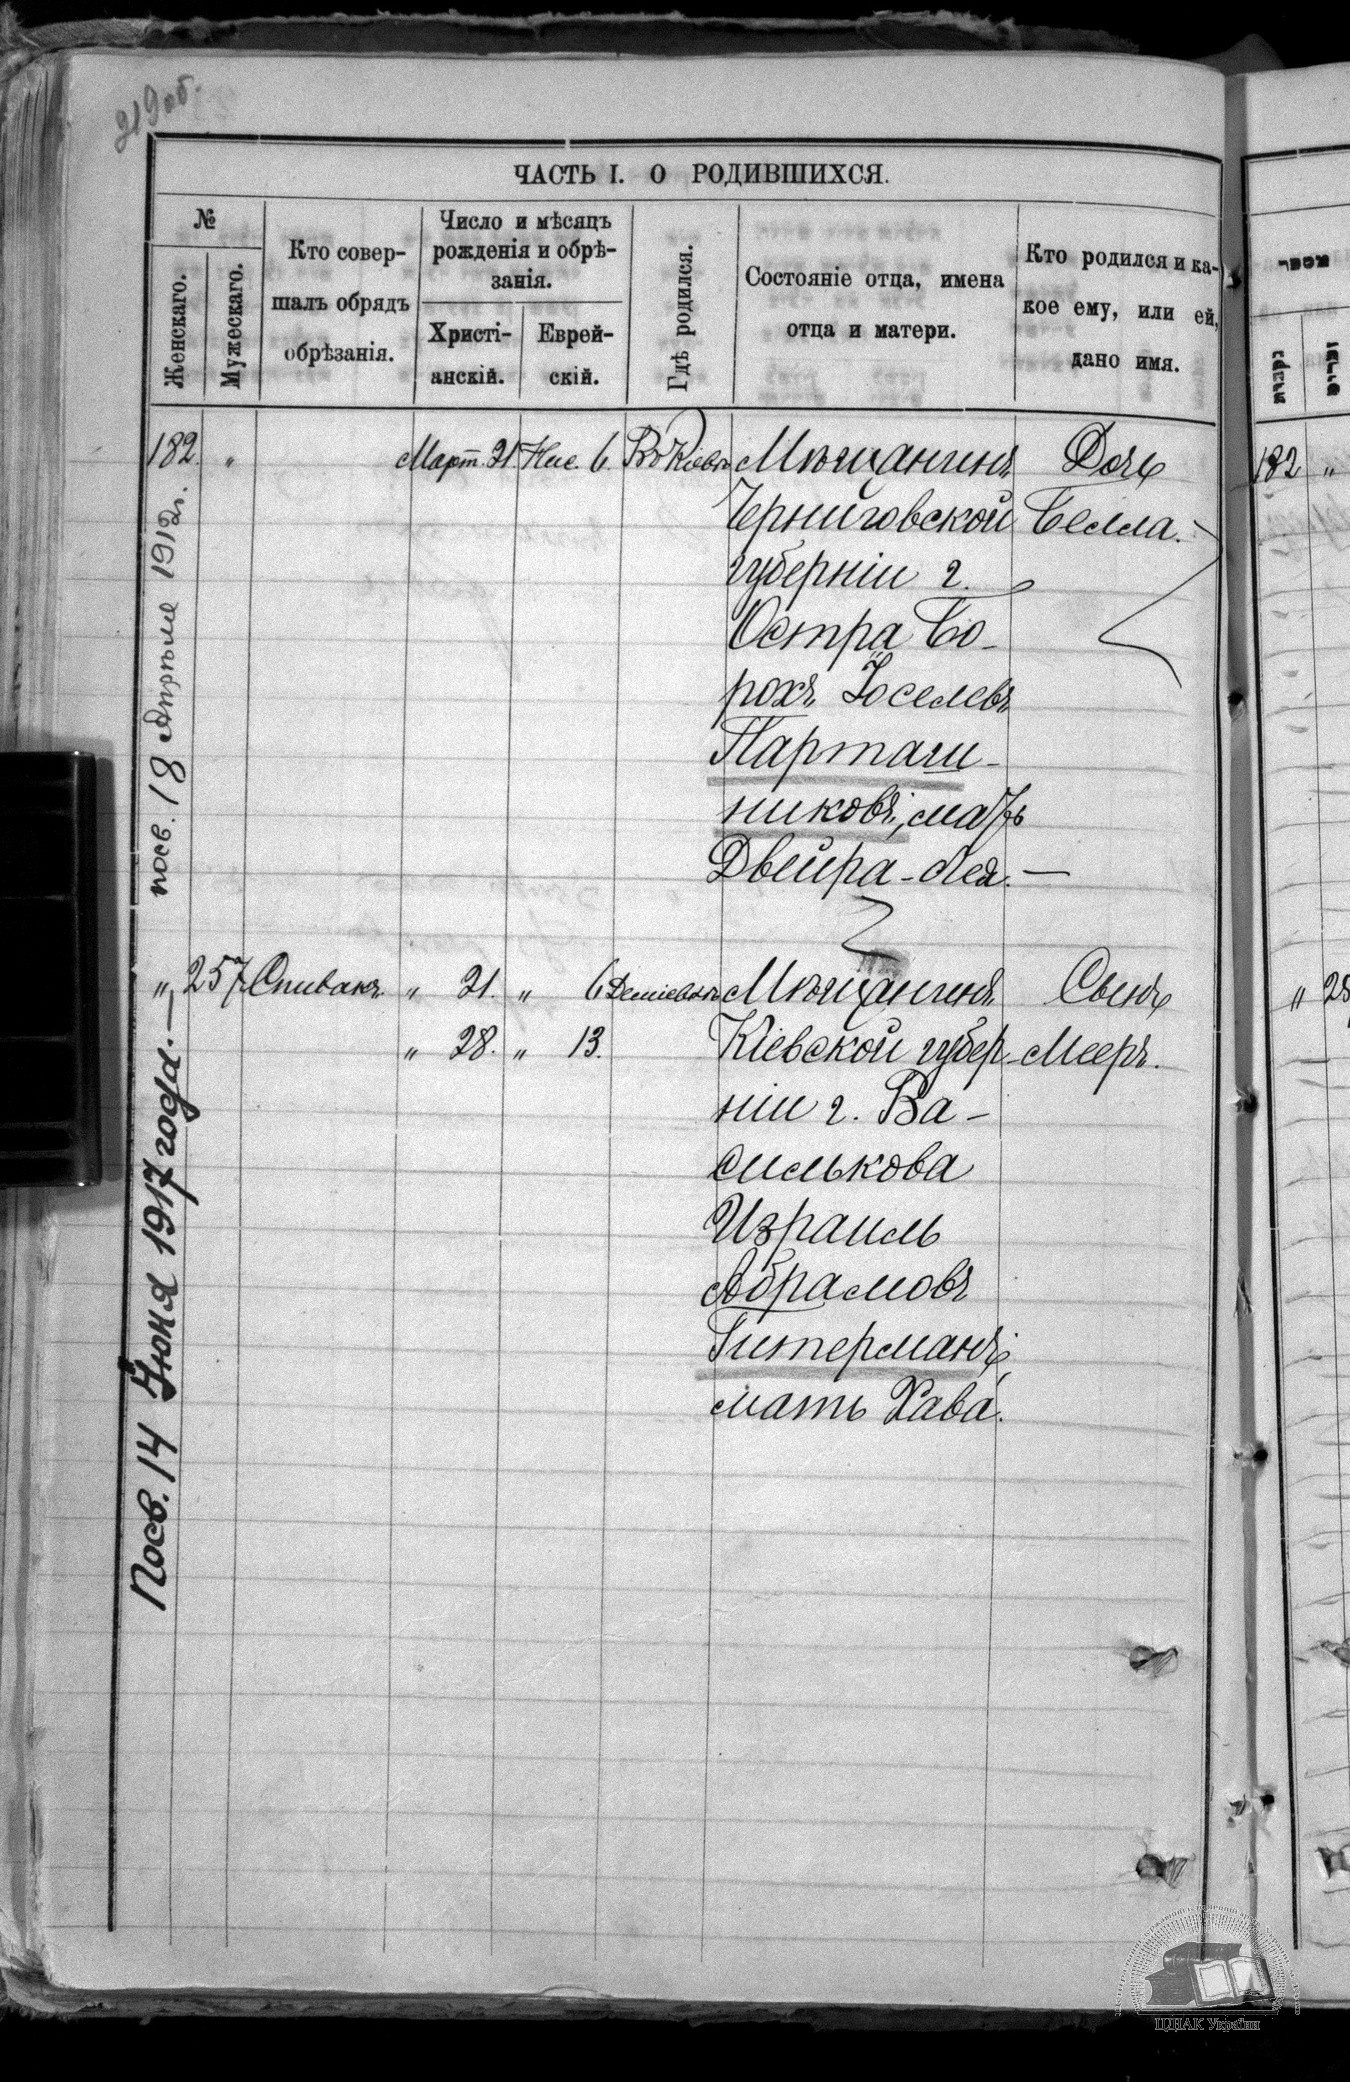 219 об.
ЧАСТЬ I. О РОДИВШИХСЯ.
№
Женскаго.
Мужескаго.
Кто совер-
шалъ обрядъ
обрѣзанія.
Число и мѣсяцъ
рожденія и обрѣ-
занія.
Христі-
анскій.
Еврей-
скій.
Гдѣ родился.
Состояніе отца, имена
отца и матери.
Кто родился и ка-
кое ему, или ей,
дано имя.
182. „ Март. 21. Нис. 6. Въ Кіевѣ Мѣщанинъ Дочь
Черниговской Белла.
губерніи г.
Остра Бо-
рохъ Іоселевъ
Парташ-
никовъ, мать
Двейра-Лея. —
„ 257 Спивакъ. „ 21. „ 6 Деміевкѣ Мѣщанинъ Сынъ
„ 28. „ 13. Кіевской губер- Мееръ.
ніи г. Ва-
силькова
Израиль
Абрамовъ
Гитерманъ,
мать Хава.
посв. 18 Апрѣля 1912 г.
Посв. 14 Іюня 1917 года. —
נקבות
זכרים
182 „
„ 25
ЦДІАК України